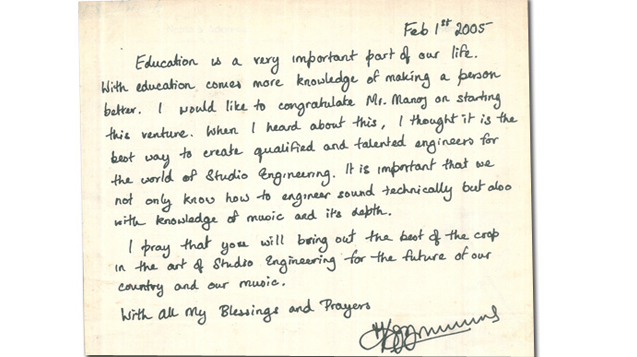 Feb 1st 2005
Education is a very important part of our life.
With education comes more knowledge of making a person
better. I would like to congratulate Mr. Manoj on starting
this venture. When I heard about this, I thought it is the
best way to create qualified and talented engineers for
the world of Studio Engineering. It is important that we
not only know how to engineer sound technically but also
with knowledge of music and its depth.
I pray that you will bring out the best of the crop
in the art of Studio Engineering for the future of our
country and our music.
With All My Blessings and Prayers